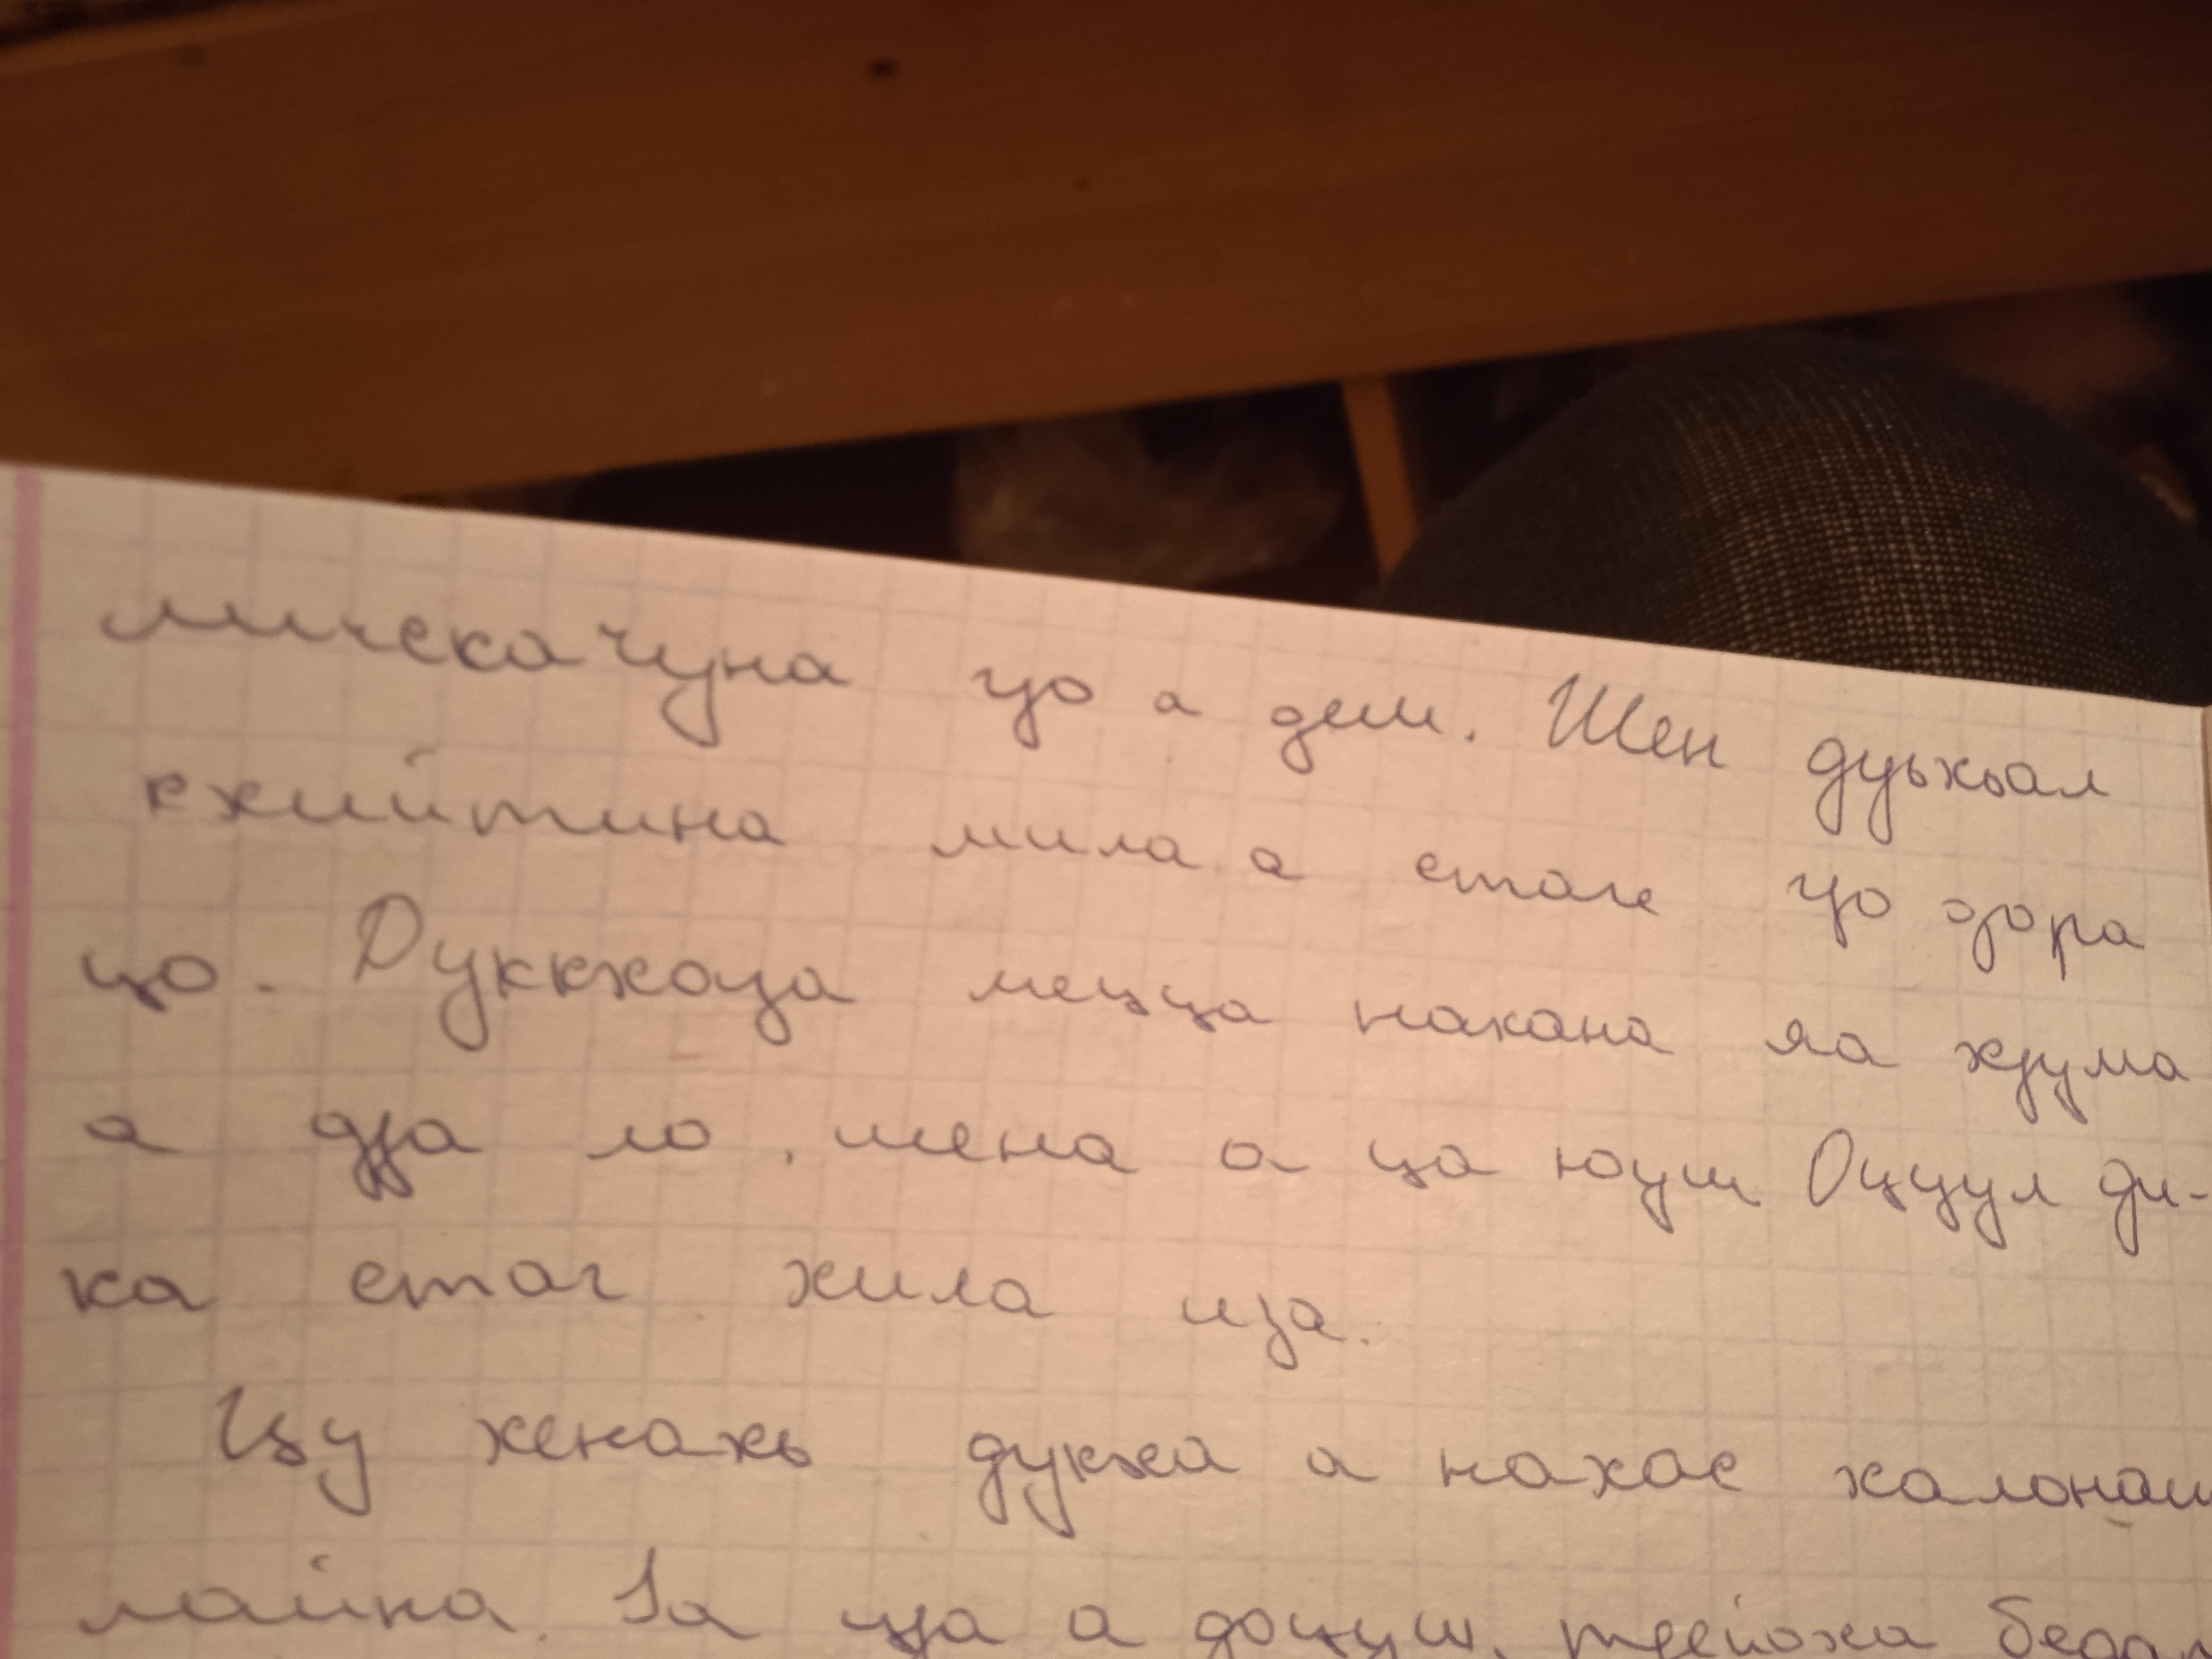 мискачуна гӀо а деш. Шен дуьхьал
кхийтина мила а стаге гӀо дора
цо. Дуккхаза мецца нахана яа хӀума
а дӀа ло, шена а ца юуш. Оццул ди-
ка стаг хила иза.
Цу хенахь дукха а нахас халонаш
лайна. Ӏа ца а доцуш,